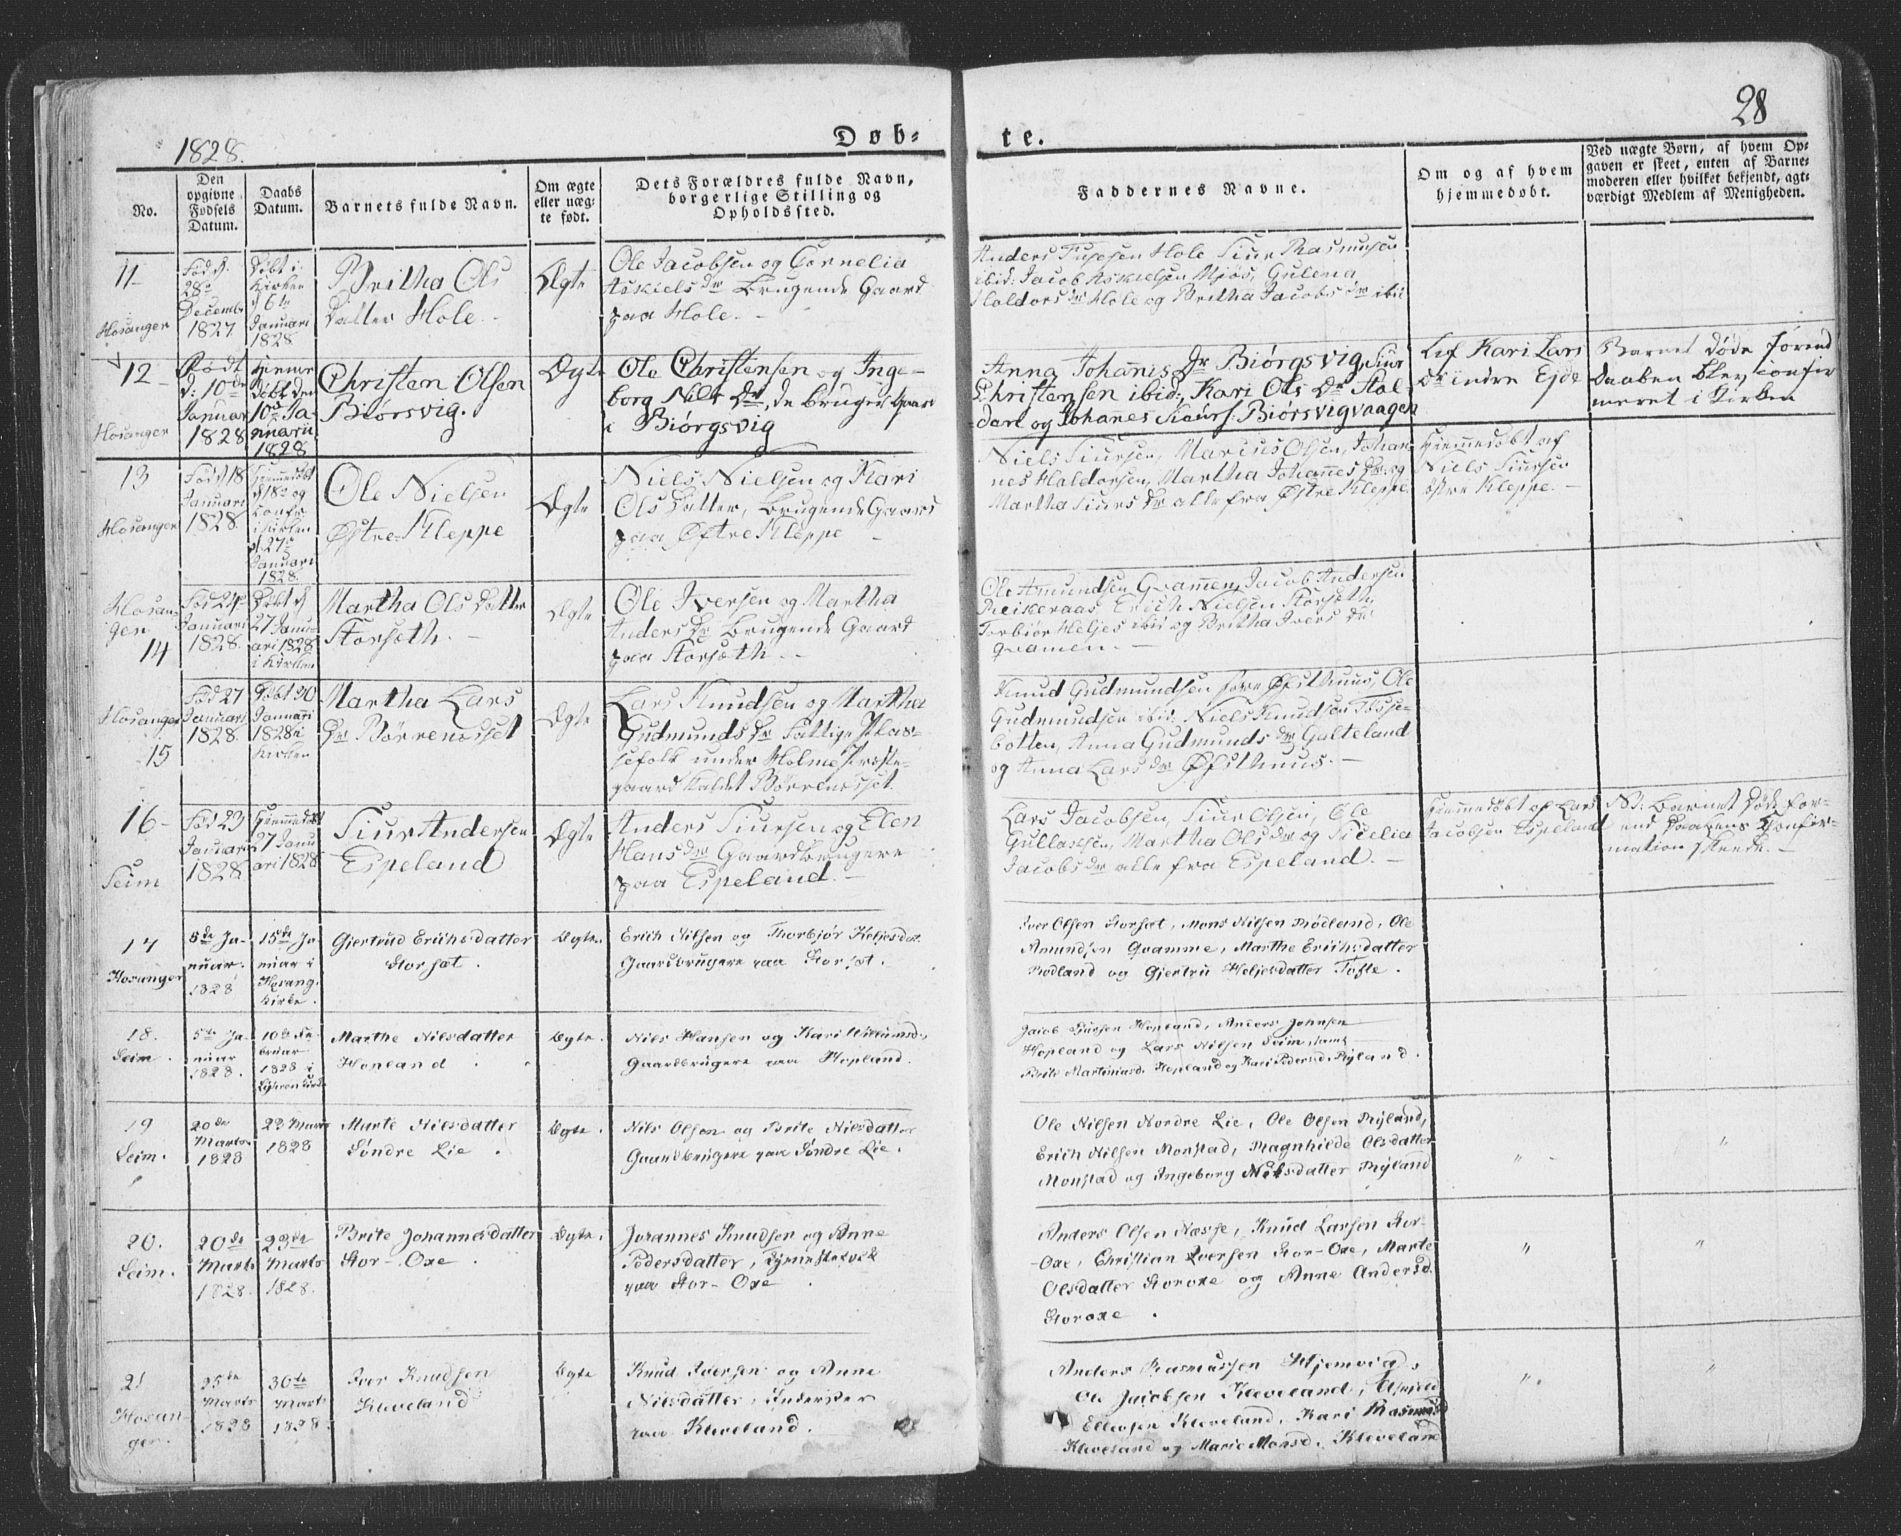 1828.
Døb-
te.
28
No.
Den
opgivne
Fødsels
Datum.
Daabs
Datum.
Barnets fulde Navn.
Om ægte
eller næg-
te født.
Dets Forældres fulde Navn,
borgerlige Stilling og
Opholdssted.
Faddernes Navne.
Om og af hvem
hjemmedøbt.
Ved nægte Børn, af hvem Op-
gaven er skeet, enten af Barne-
moderen eller hvilket bekjendt, agt-
værdigt Medlem af Menigheden.
11
Hosanger
Fød d.
28de
Decembr
1827
Døbt i
Kirken
d 6te
Januari
1828
Britha Ols
Datter Hole.
Ægte
Ole Jacobsen og Cornelia
Askiels Dr Brugende Gaard
paa Hole.
Anders Hole Siur Rasmusen
ibid: Jacob Askielsen Mjøs, Gulena
Haldors Dr Hole og Britha Jacobs Dr ibid
12
Hosanger
Født
d: 10de
Januar
1828
Hjemme
Døbt den
10de Ja-
nuarii
1828
Christen Olsen
Biørsvig.
Ægte
Ole Christensen og Inge-
borg Nils Dr, de bruger Gaard
i Biørgsvig
Anna Johanis Dr Biørgsvig, Siur
Christensen ibid:, Kari Ols Dr
og Johanes Biørsvigvaagen
Kari Lars
Dr indre Ejde
Barnet døde førend
Daaben blev confir
meret i Kirken
13
Hosanger
Fød 18
Januari
1828
Hjemmedøbt
d 18de og
Confr
i Kirken
d 27de
Januari
1828.
Ole Nielsen
Østre Kleppe
Ægte
Niels Nielsen og Kari
Ols Datter, Brugende Gaard
paa Østre Kleppe
Niels Siursen, Marcus Olsen, Johan-
nes Haldorsen, Martha Johannes Dr og
Martha Siurs Dr alle fra Østre Kleppe
Hjemmedøbt af
Niels Siursen
østre Kleppe.
Hosan-
gen
14
Fød 24
Januari
1828.
Døbt d
27 Janu-
ari 1828
i Kirken
Martha Ols Datter
Storsæth.
Ægte
Ole Iversen og Martha
Anders Dr Brugende Gaard
paa Storsæth.
Ole Amundsen Qvammen, Jacob Andersen
Reikeraas, Erich Nielsen Storsæth,
Torbiør Heljes ibid og Britha Ivers Dr
Qvamen.
Hosanger
15
Fød 27
Januari
1828
Døbt 30
Januari
1828 i
Kirken
Martha Lars
Dr Børrenesset
Ægte
Lars Knudsen og Martha
Gudmunds Dr Fattige Plas-
sefolk under Holme Præste-
gaard Kaldet Børrenesset
Knud Gudmundsen Øfsthuus, Ole
Gudmundsen ibid. Niels Knudsen Tosse-
botten, Anna Gudmunds Dr Galteland
og Anna Lars Dr Øfsthuus.
16
Seim
Fød 23
Januari
1828
Hjemmedøbt
27 Janu
ari 1828
Siur Andersen
Espeland
Ægte
Anders Siursen og Elen
Hans Dr Gaardbrugere
paa Espeland.
Lars Jacobsen, Siur Olsen, Ole
Gullaksen, Martha Ols Dr og Siselia
Jacobs Dr alle fra Espeland.
Hjemmedøbt af Lars
Jacobsen Espeland
NB: Barnet døde før-
end Daabens Confir-
mation skeede.
17
Hosanger
5de Ja-
nuar.
1828
15de Ja
nuar i
Hosang.
Kirke.
Gjertrud Erichsdatter
Storsæt.
Ægte.
Erich Nilsen og Thorbjør Heljesdat.
Gaardbrugere paa Storsæt.
Iver Olsen Storsæt, Mons Nilsen Rødland, Ole
Amundsen Qvamme, Marthe Erichsdatter
Rødland og Gjertru Heljesdatter Tofte.
18.
Seim.
5te Ja-
nuar
1828.
10de Fe
bruar
1828 i
Marthe Nilsdatter
Hopland.
Ægte.
Nils Hansen og Kari
Gaardbrugere paa Hopland.
Jacob Hopland, Anders Johnsen
Hopland og Lars Nilsen Seim, samt
Brite Martinusd. Hopland og Kari Pedersd. Ryland.
19
Seim.
20de
Marts
1828
23 Marts
1828
Marte Nilsdatter
Søndre Lie.
Ægte.
Nils Olsen og Brite Nilsdatter
Gaardbrugere paa Søndre Lie.
Ole Nilsen Nordre Lie, Ole Olsen Ryland,
Erich Nilsen Monstad, Magnhilde Olsdatter
Monstad og Ingeborg Nilsdatter Ryland
"
"
20.
Seim.
20de
Marts
1828.
23de
Marts
1828.
Brite Johannesdatter
Stor-Oxe.
Ægte.
Johannes Knudsen og Anne
Pedersdatter, Tjenestefolk
paa Stor-Oxe.
Anders Olsen Næsse, Knud Larsen Stor-
-Oxe, Christian Iversen Stor-Oxe, Marte
Olsdatter Storoxe og Anne Andersd.
Storoxe.
"
"
21
Hosan-
ger.
25de
Marts
1828
30te
Marts
1828.
Iver Knudsen
Kleveland
Ægte
Knud Iversen og Anne
Nilsdatter, Inderster
paa Kleveland.
Anders Rasmussen Hjemvig,
Ole Jacobsen Kleveland,
Ellevsen Kleveland, Kari Rasmusd
Kleveland og Marie Monsd. Kleveland
"
"